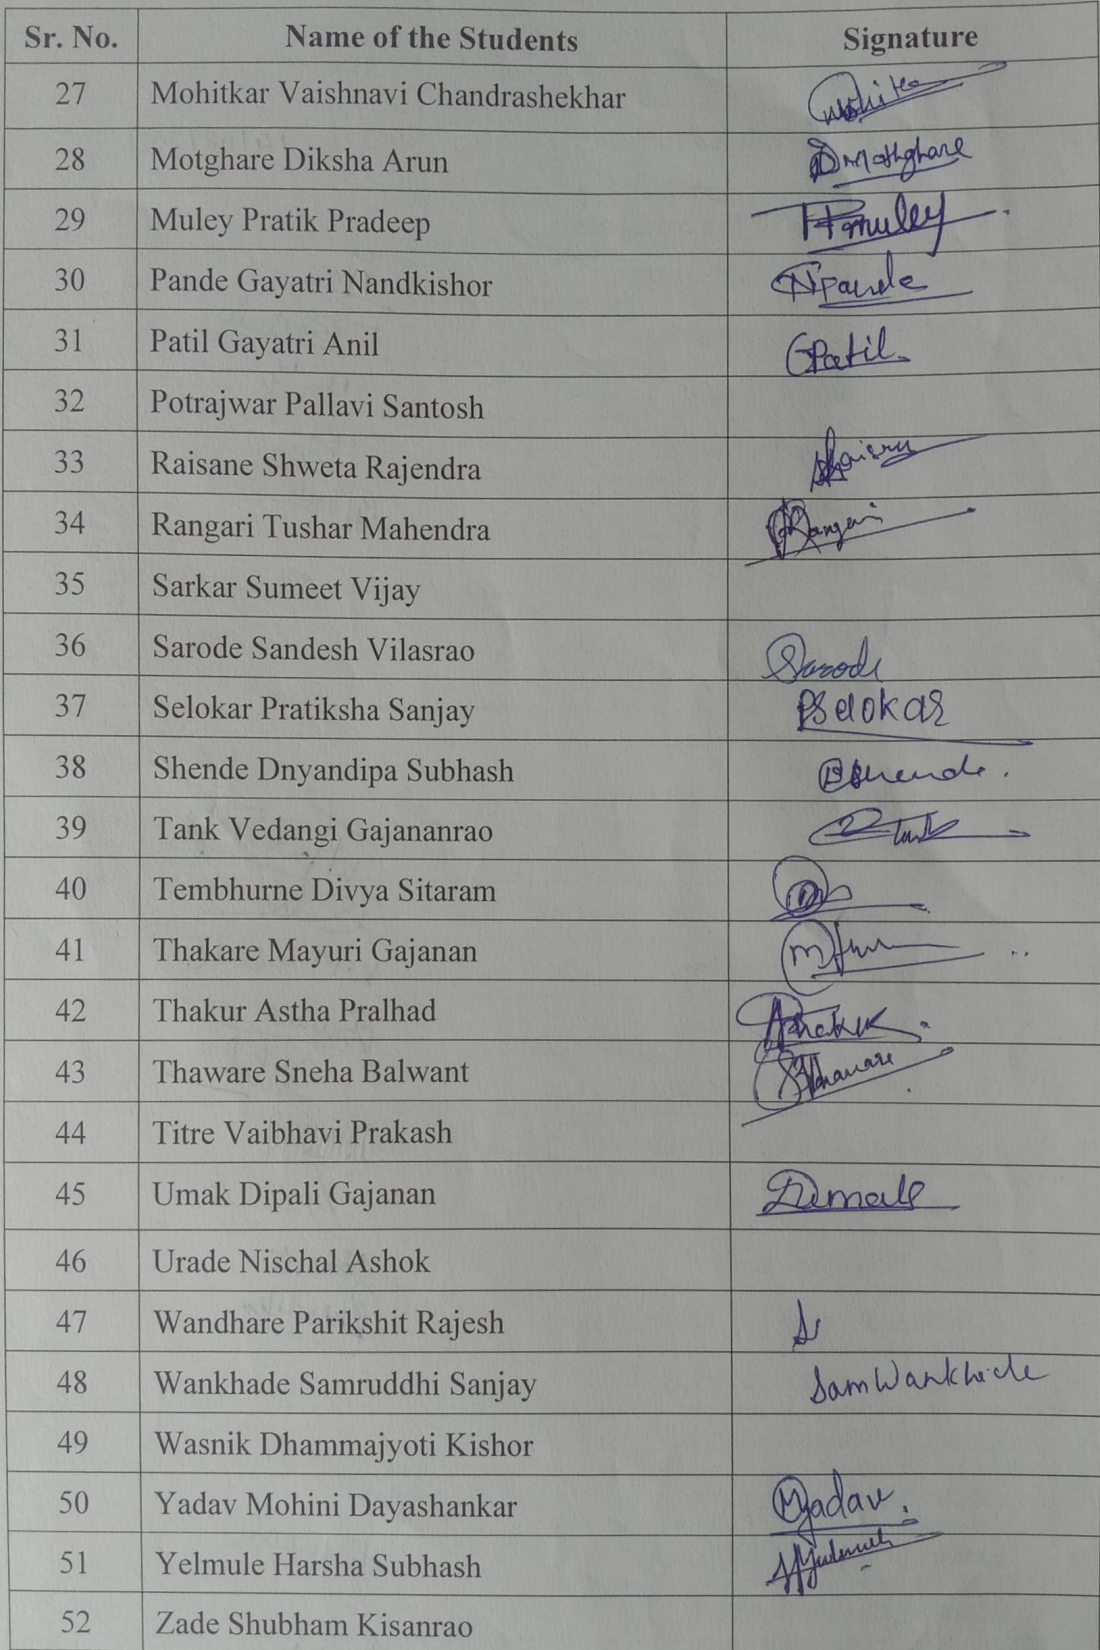 Sr. No. Name of the Students Signature
27 Mohitkar Vaishnavi Chandrashekhar
28 Motghare Diksha Arun DMothghare
29 Muley Pratik Pradeep PPmuley
30 Pande Gayatri Nandkishor
31 Patil Gayatri Anil GPatil
32 Potrajwar Pallavi Santosh
33 Raisane Shweta Rajendra
34 Rangari Tushar Mahendra
35 Sarkar Sumeet Vijay
36 Sarode Sandesh Vilasrao Sarode
37 Selokar Pratiksha Sanjay PSelokar
38 Shende Dnyandipa Subhash
39 Tank Vedangi Gajananrao
40 Tembhurne Divya Sitaram
41 Thakare Mayuri Gajanan
42 Thakur Astha Pralhad
43 Thaware Sneha Balwant
44 Titre Vaibhavi Prakash
45 Umak Dipali Gajanan
46 Urade Nischal Ashok
47 Wandhare Parikshit Rajesh
48 Wankhade Samruddhi Sanjay SamWankhede
49 Wasnik Dhammajyoti Kishor
50 Yadav Mohini Dayashankar MYadav.
51 Yelmule Harsha Subhash
52 Zade Shubham Kisanrao